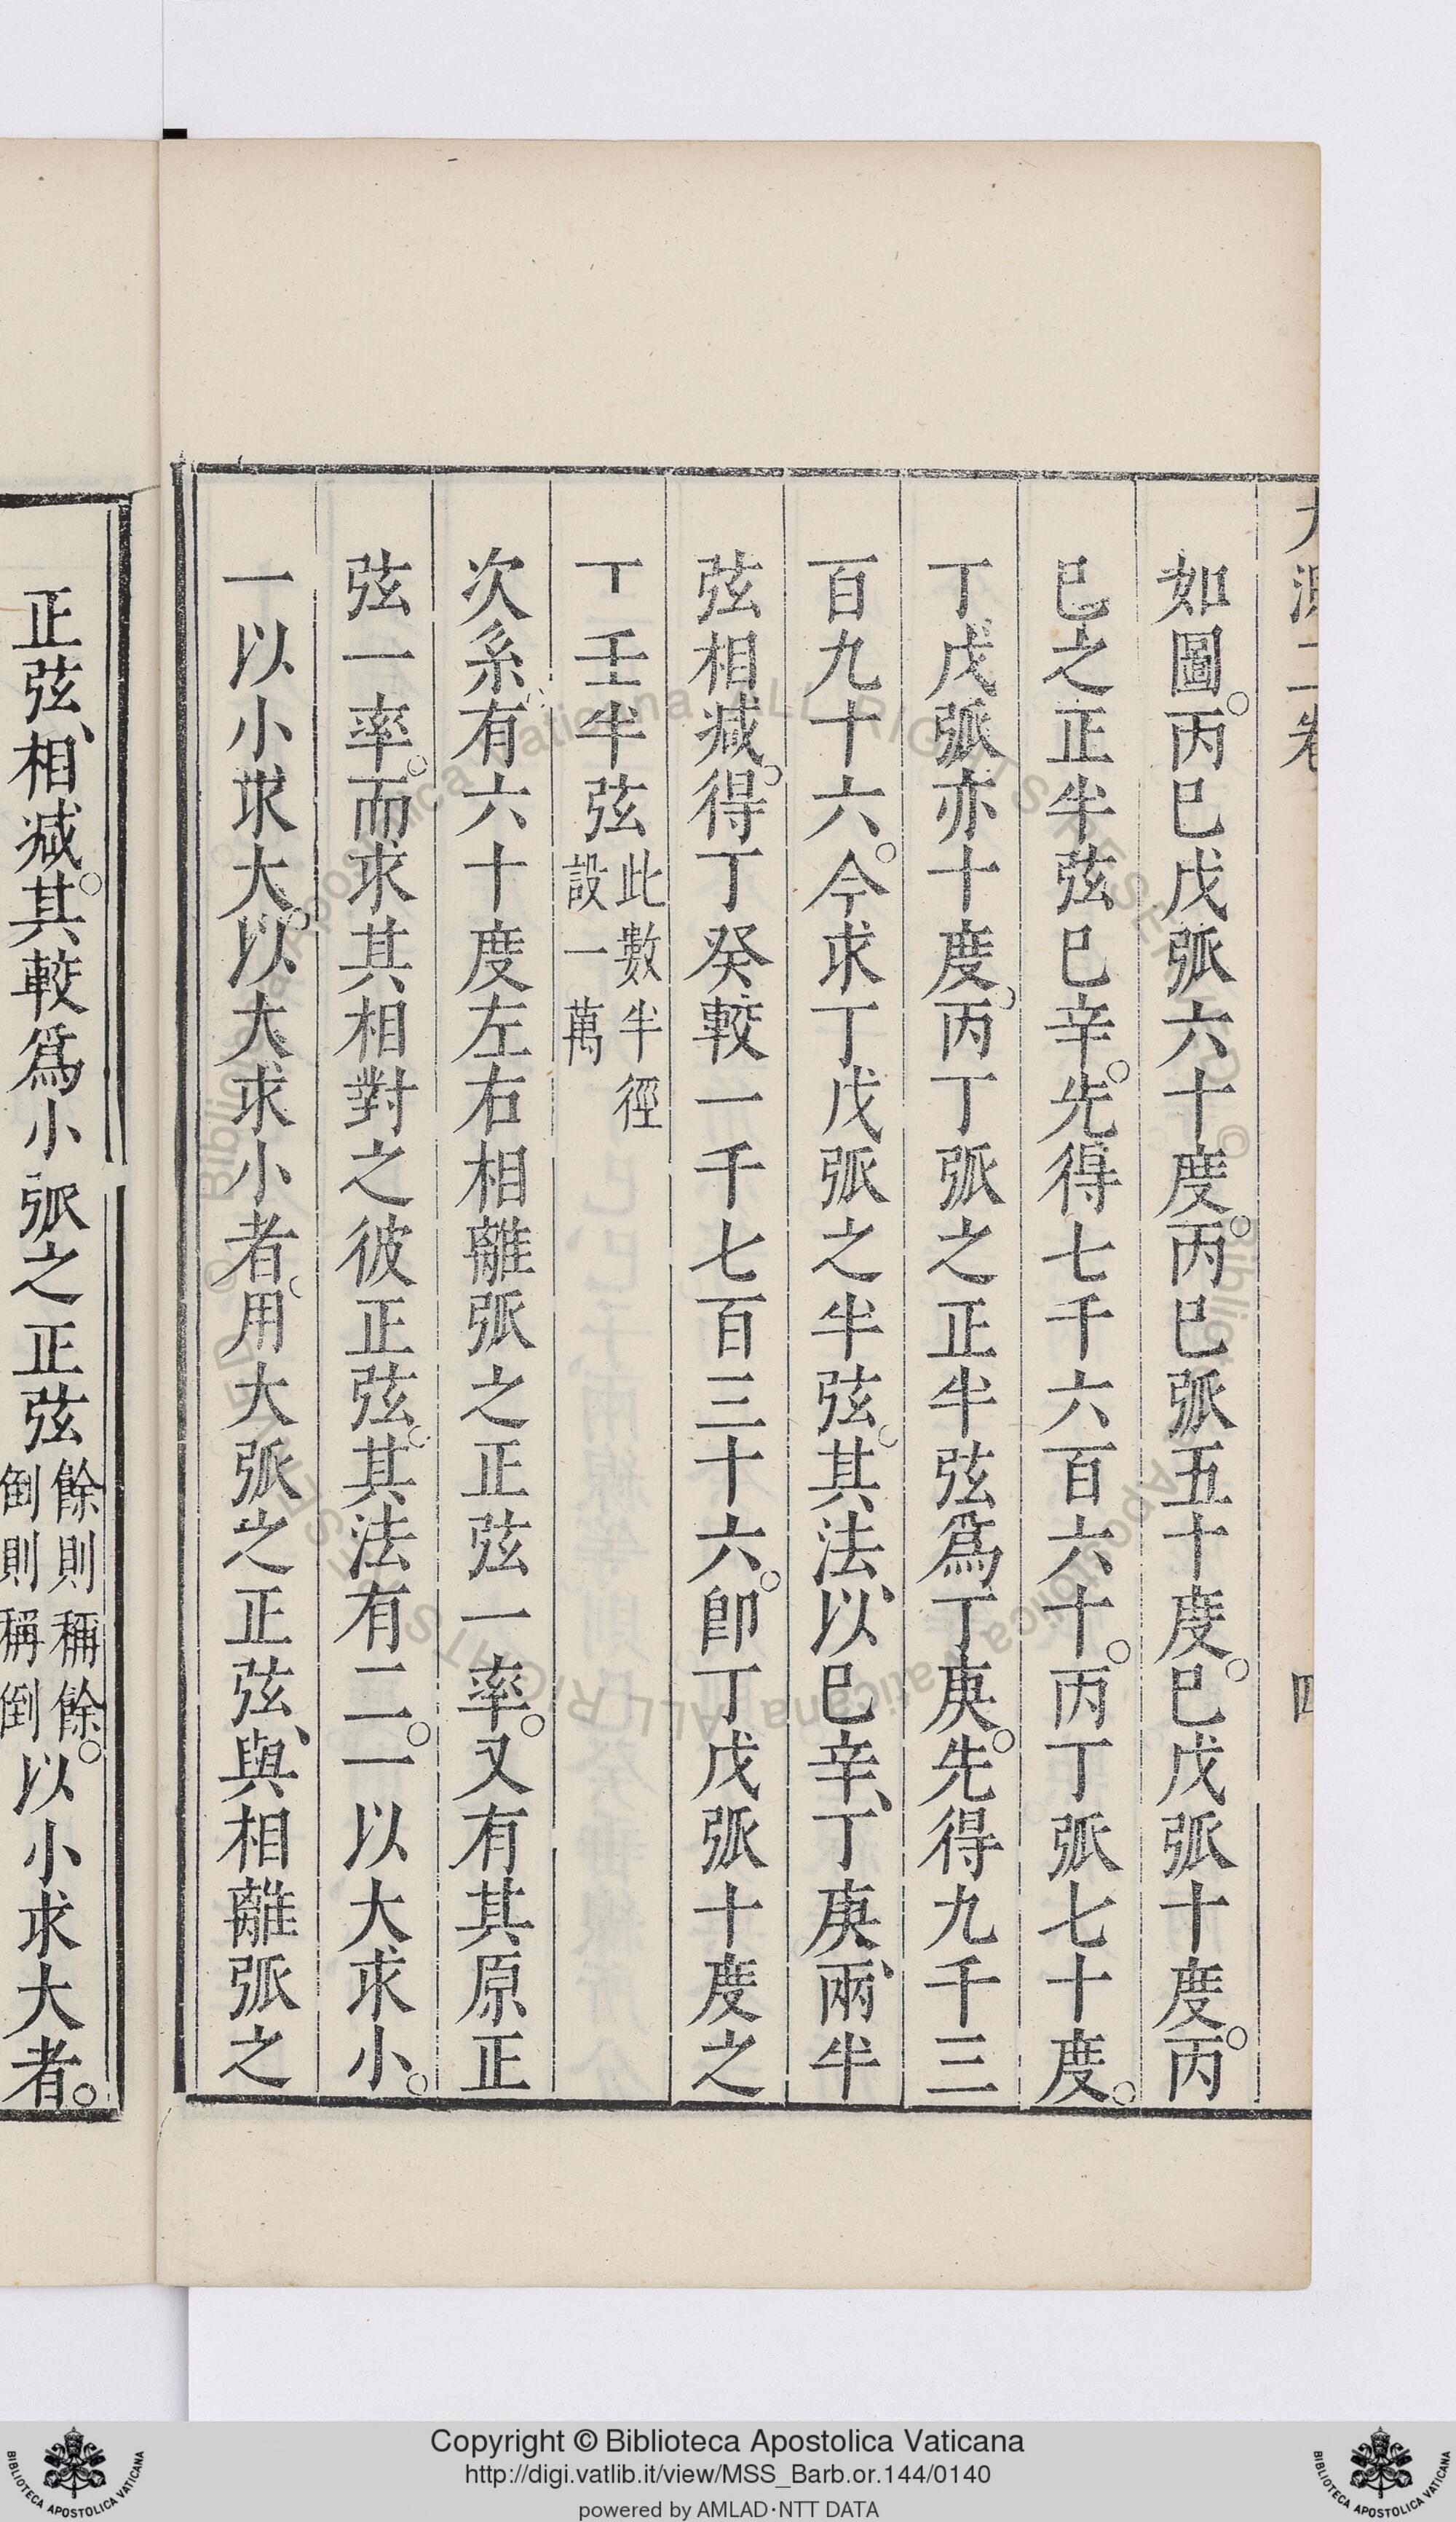 如圖。丙巳戊弧六十度。丙巳弧五十度。巳戊弧十度。丙
巳之正半弦巳辛。先得七千六百六十。丙丁弧七十度。
丁戊弧亦十度。丙丁弧之正半弦爲丁庚。先得九千三
百九十六。今求丁戊弧之半弦。其法、以巳辛、丁庚、兩半
弦相减。得丁癸較一千七百三十六。卽丁戊弧十度之
丁壬半弦此數半徑設一萬
次系。有六十度左右相離弧之正弦一率。又有其原正
弦一率。而求其相對之彼正弦。其法有二。一以大求小。
一以小求大。以大求小者。用大弧之正弦、與相離弧之
正弦、相减。其較爲小弧之正弦餘則稱餘倒則稱倒。以小求大者。
二卷
四
Copyright © Biblioteca Apostolica Vaticana
http://digi.vatlib.it/view/MSS_Barb.or.144/0140
powered by AMLAD·NTT DATA
BIBLIOTECA APOSTOLICA VATICANA
BIBLIOTECA APOSTOLICA VATICANA